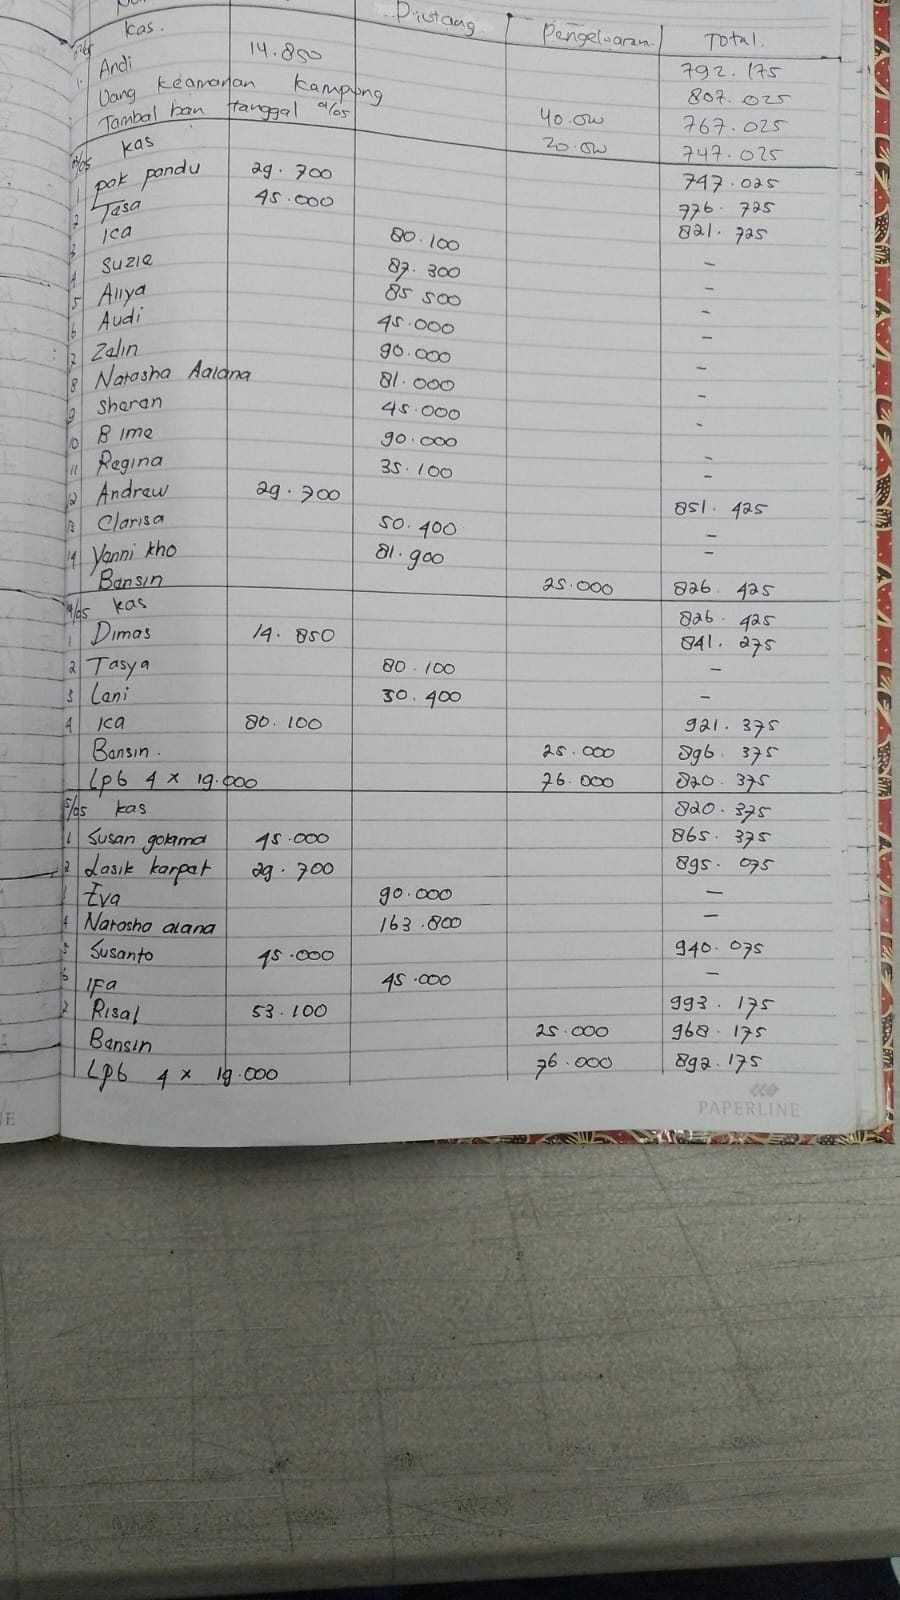 Piutang Pengeluaran Total.
kas. 792.175
1. Andi 14.850 807.025
Uang keamanan kampung 40.000 767.025
Tambal ban tanggal 2/05 20.000 747.025
kas 747.025
1 pak pandu 29.700 776.725
2 Tasa 45.000 821.725
3 Ica 80.100 -
4 Suzie 87.300 -
5 Aliya 85 500 -
6 Audi 45.000 -
7 Zalin 90.000 -
8 Natasha Aalana 81.000 -
9 Sharan 45.000 -
10 Bime 90.000 -
11 Regina 35.100 -
12 Andrew 29.700 851.425
13 Clarisa 50.400 -
14 Yanni kho 81.900 -
Bensin 25.000 826.425
4/05 kas 826.425
1 Dimas 14.850 841.275
2 Tasya 80.100 -
3 Lani 30.400 -
4 Ica 80.100 921.375
Bensin. 25.000 896.375
Lpb 4 x 19.000 76.000 820.375
5/05 kas 820.375
1 Susan golama 45.000 865.375
2 Lasik karpat 29.700 895.075
3 Eva 90.000 -
4 Natasha alana 163.800 -
5 Susanto 45.000 940.075
6 IFa 45.000 -
7 Risal 53.100 993.175
Bensin 25.000 968.175
Lpb 4 x 19.000 76.000 892.175
PAPERLINE